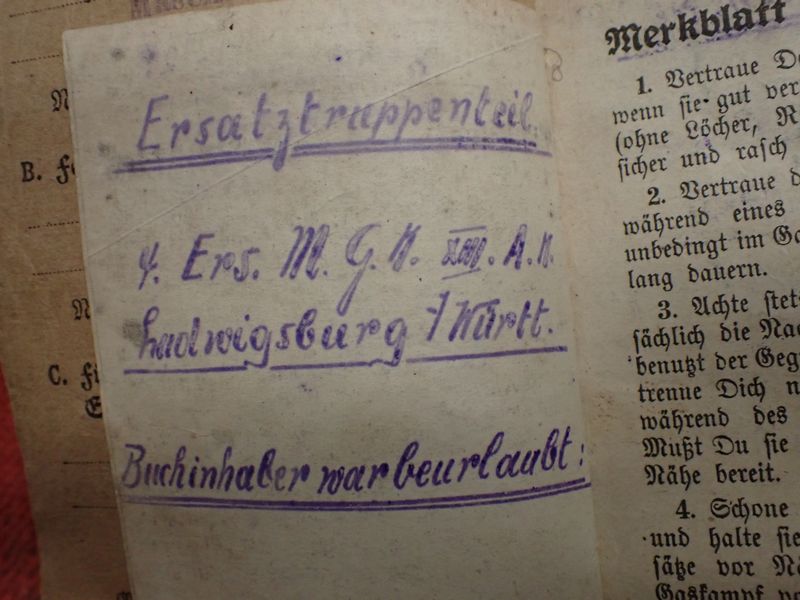 Ersatztruppenteil.
4. Ers. M. G. K. XIII. A. K.
Ludwigsburg /Württ.
Buchinhaber war beurlaubt:
B.
C.
Merkblatt
1. Vertraue
wenn sie gut
(ohne Löcher,
sicher und rasch
2. Vertraue
während eines
unbedingt im
lang dauern.
3. Achte
sächlich die
benutzt der
trenne Dich
während des
Mußt Du sie
Nähe bereit.
4. Schone
und halte sie
sätze vor
Gaskampf